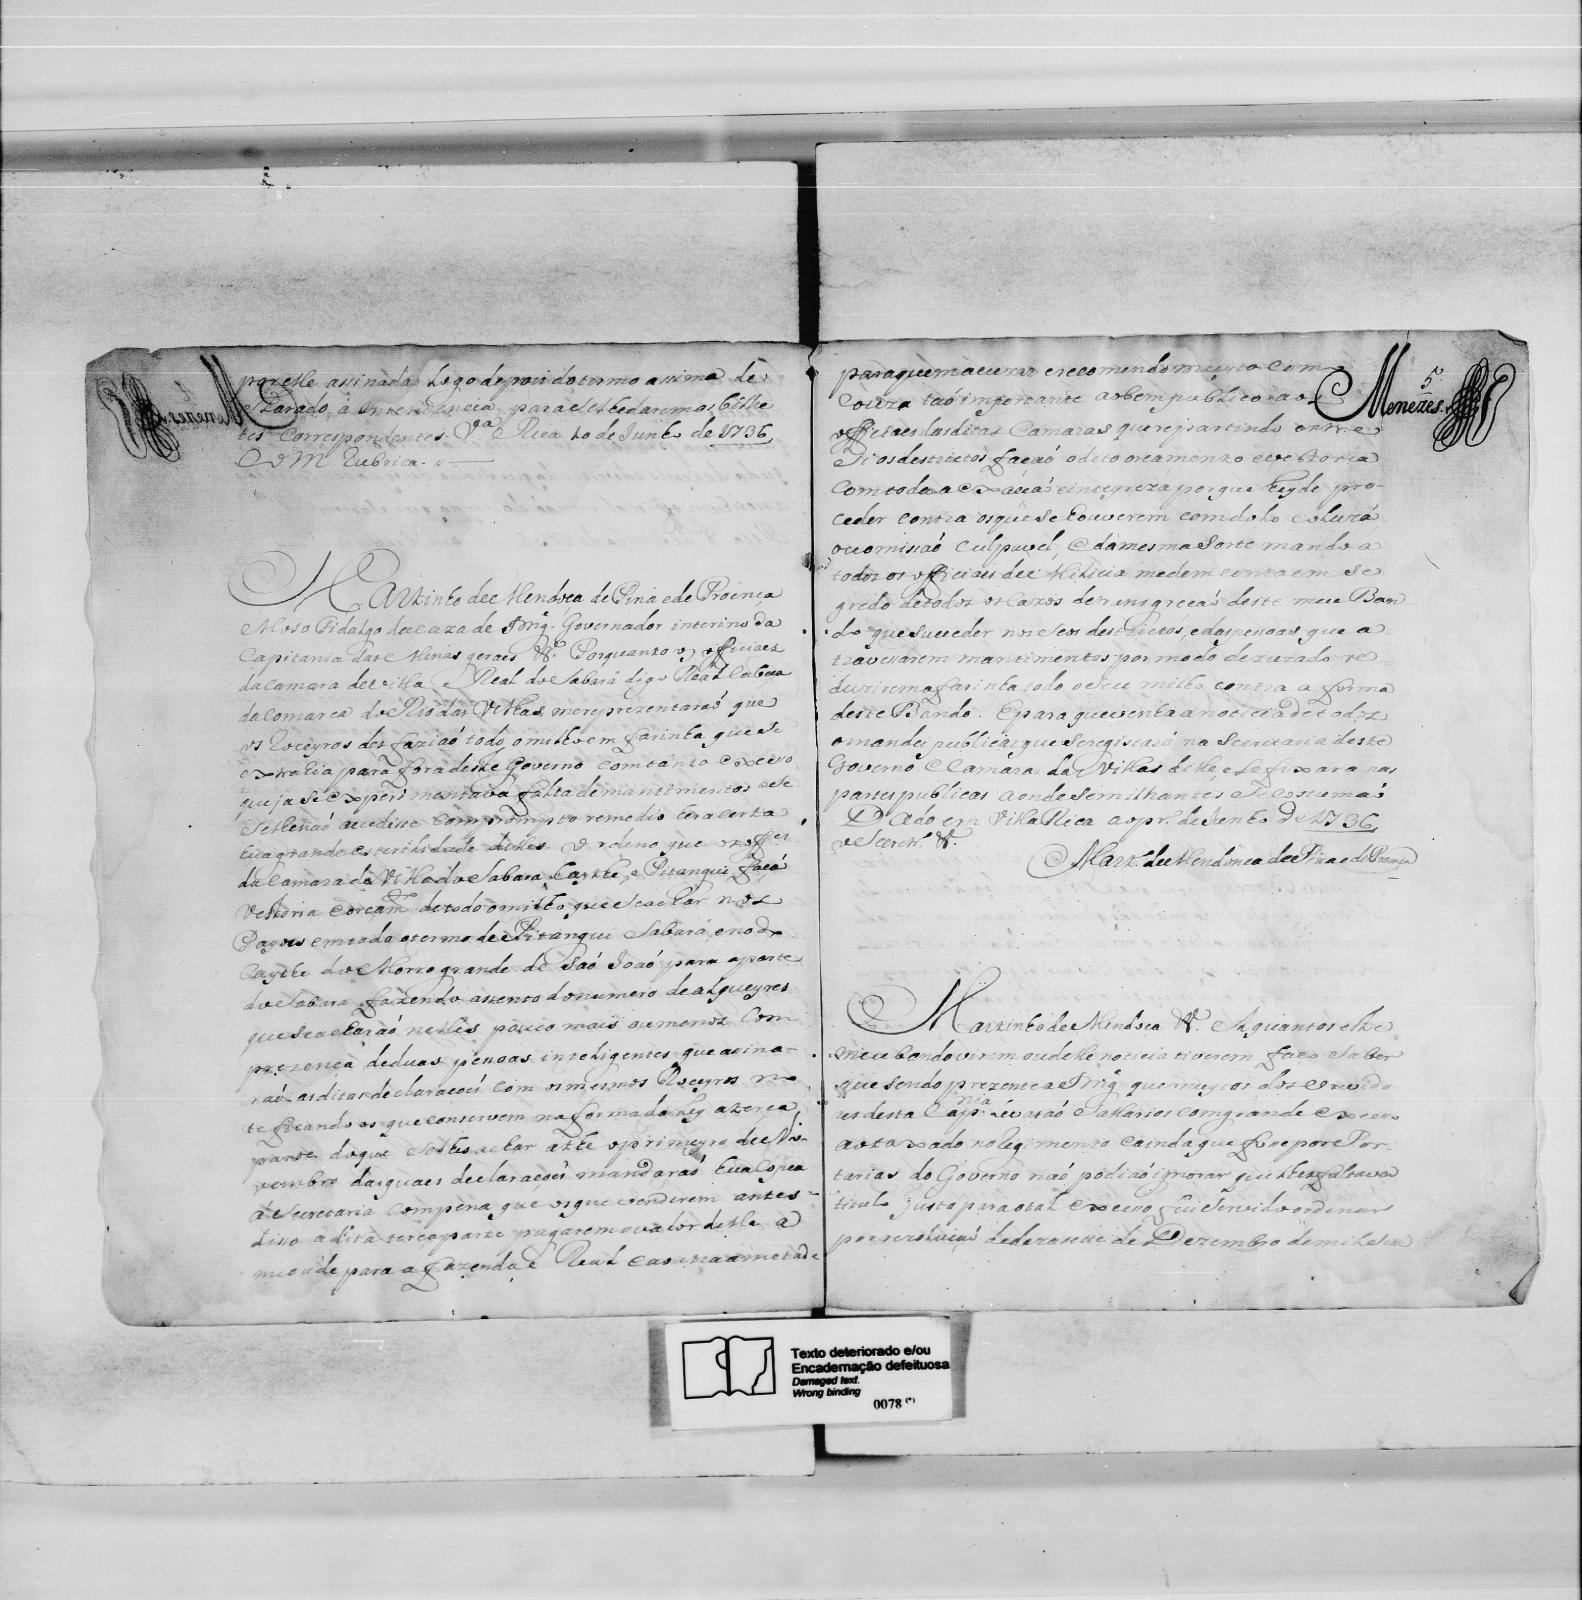 por elle assinadas logo depois do termo assima de
Clarado, á Intendencia para se lhe daremos bilhe
tes Correspondentes. Vª Rica 10 de Junho de 1736
C D M Rubrica.
Martinho de Mendoça de Pina e de Proença
Moso Fidalgo da caza de S. Mg.e Governador interino da
Capitania das Minas geraes &. Porquanto os officiaes
da Camara de Villa Real do Sabará digo Real Cabeça
da Comarca do Rio das Velhas, me reprezentaraó que
os Roceyros desfaziaó todo o milho em farinha que se
extrahia para fora deste Governo com tanto excesso
que ja se experimentava falta de mantimentos e se
se lhe naó acudisse com prompto remedio hera certa
hua grande esterilidade delles. Ordeno que os off.es
da Camara da Villa do Sabara, Caythe, e Pitangui façaó
vestoria e orçam.to de todo o milho que se achar nos
Payoes em todo o termo de Pitangui Sabará, e no do
Caythe do Morro grande de Saó Joaó para a parte
do Sabara fazendo assento do numero de alqueyres
que se acharaó nelles pouco mais ou menos com
prezença de duas pessoas inteligentes que assina-
raó as ditas declaraçoés com os mesmos Roceyros no
te ficando os que conservem na forma da Ley a terça
parte do que se lhes achar athe o primeyro de No-
vembro das quaes declaraçoés mandaraó hua Copea
á Secretaria com pena que os que venderem antes
disso a dita terça parte pagarem o valor della a
metade para a fazenda Real e a outra a metade
Menezes. 5
para quem accuzar e recomendo muyto com
Couza taó importante ao bem publico aos
officiaes das ditas Camaras que repartindo entre
Si os destrictos façaó o dito orçamento e vestoria
com toda a exacçaó e inteyreza porque hey de pro-
ceder contra os que se houverem com dolo e oluzaó
ou omissaó culpavel, E da mesma Sorte mando a
todos os officiaes de Milicia me dem conta em se
gredo de todos os cazos de transgreçaó deste meu Ban
do que suceder nos seus destrictos, e das pessoas que a
travessarem mantimentos por modo dezuzado re
duzirem a farinha todo o seu milho contra a forma
deste Bando. E para que venha a noticia de todos
o mandei publicar que se registará na Secretaria deste
Governo e Camara das Villas delle, e se fixara nas
partes publicas aonde semilhantes se costumaó
Dado em Villa Rica ao pr.º de Junho de 1736
o Secretr.º &.
Mart.º de Mendonca de Pina e de Proença
Martinho de Mendoca &. A quantos este
meu bando virem ou delle noticia tiverem faço saber
que sendo prezente a S. Mg.e que muytos dos ouvido
res desta Cap.nia levavaó Sallarios com grande excesso
ao taxado no Regimento e ainda que fosse por Por-
tarias do Governo naó podiaó ignorar que lhes faltava
titulo justo para o tal excesso foi servido ordenar
por rezoluçaó de dezasette de Dezembro de mil e sete
Texto deteriorado e/ou
Encadernação defeituosa
Damaged text.
Wrong binding
0078